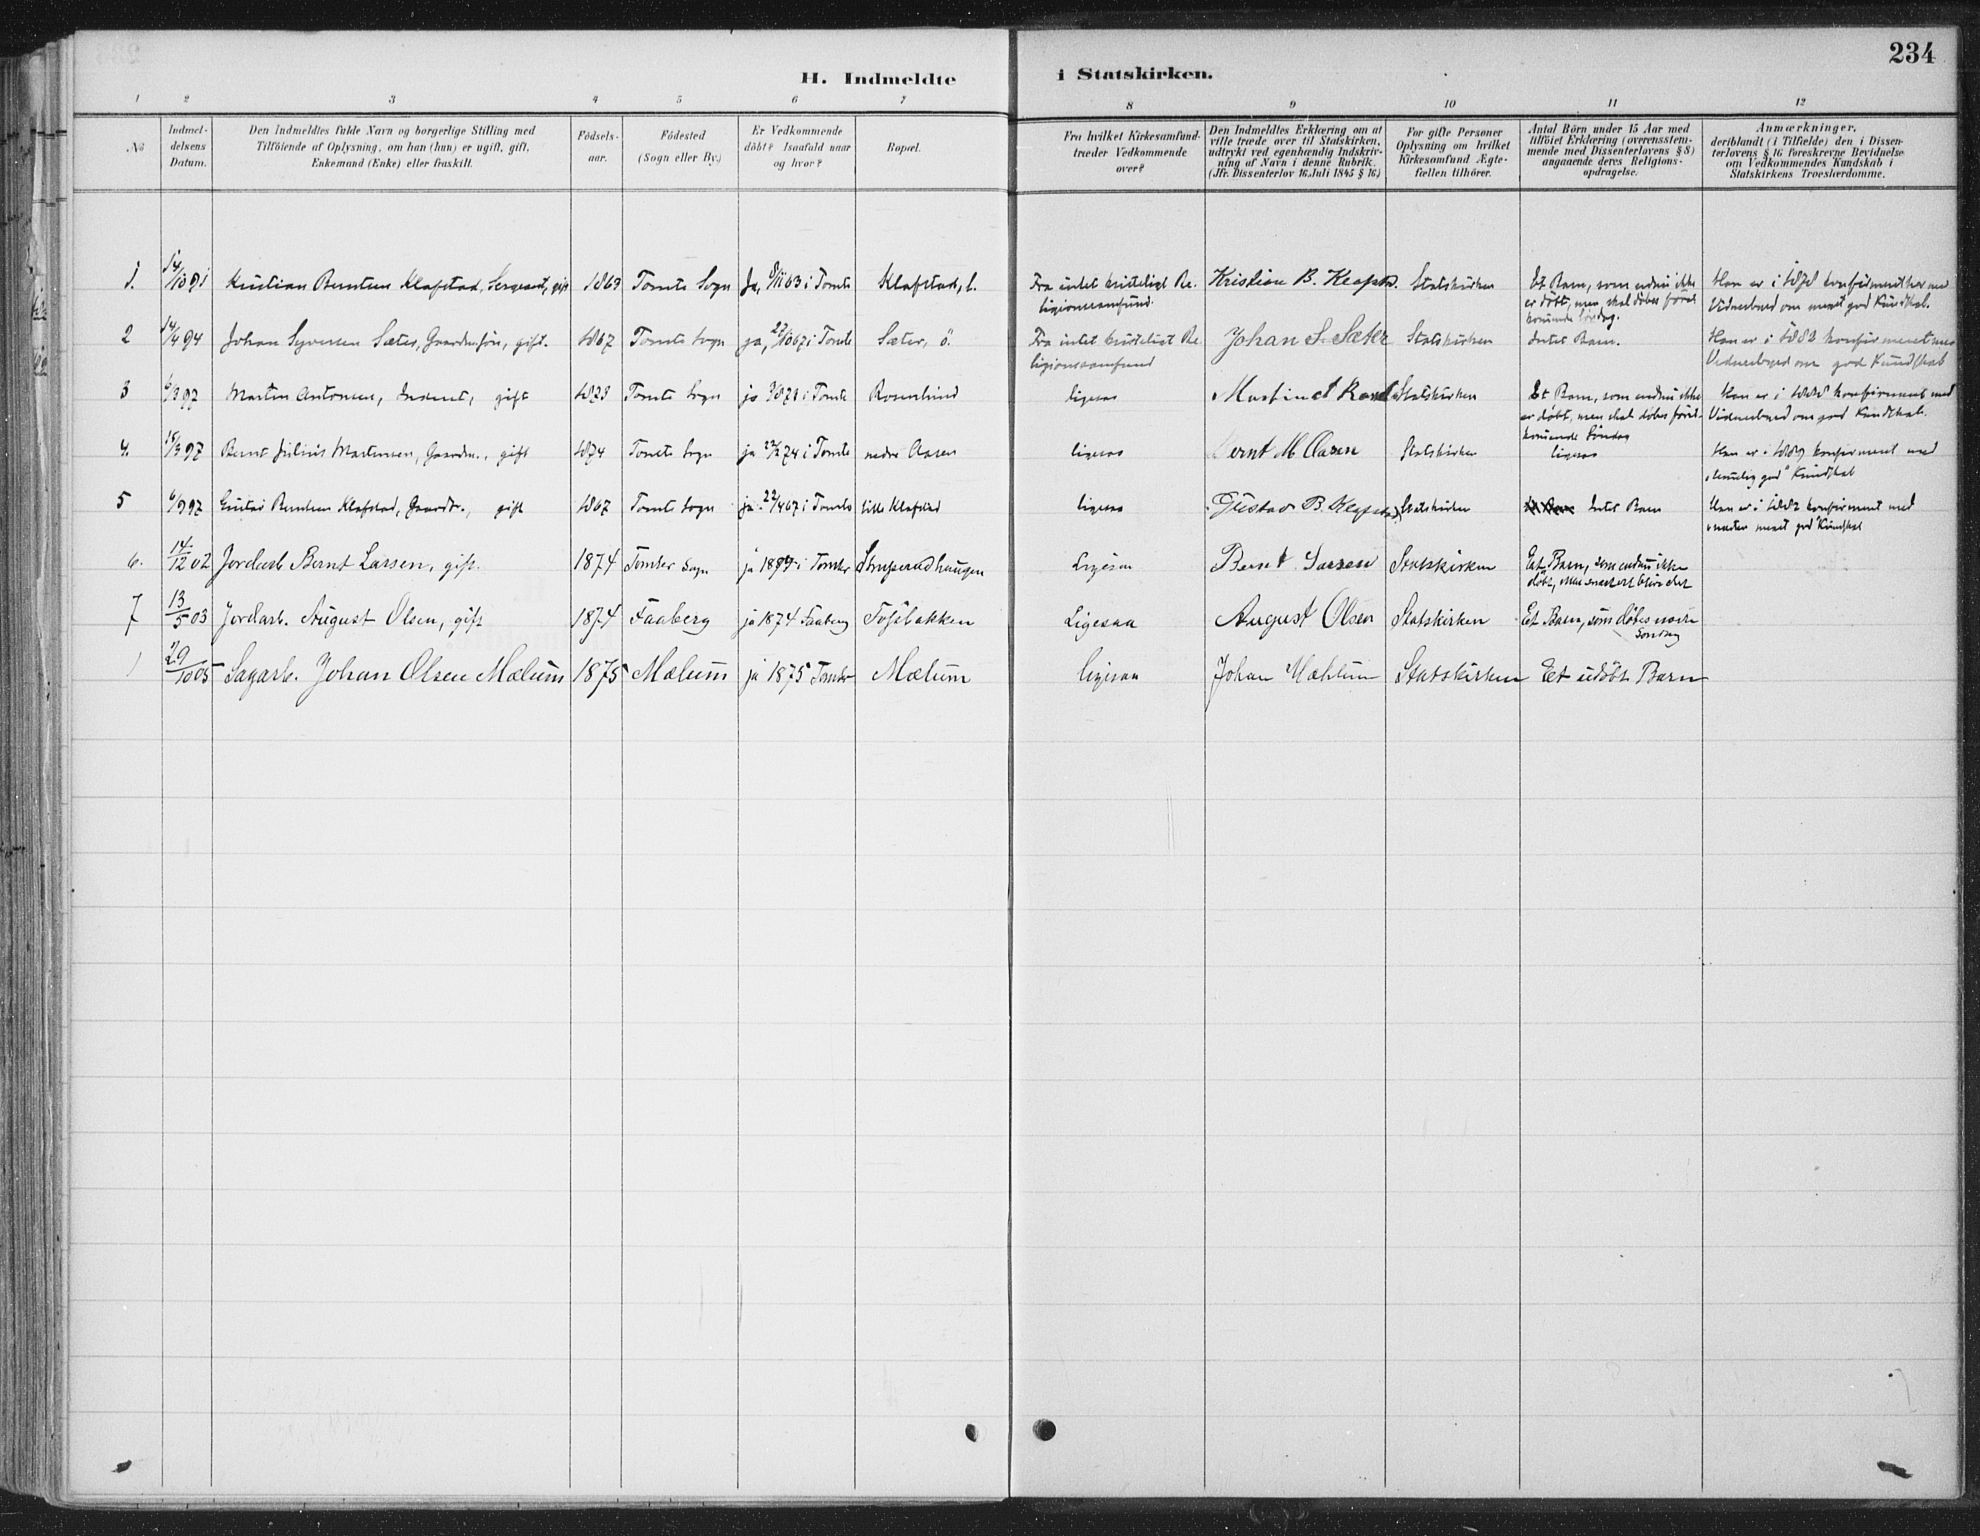 234
H. Indmeldte i Statskirken.
1 2 3 4 5 6 7 8 9 10 11 12
No
Indmel-
delsens
Datum.
Den Indmeldtes fulde Navn og borgerlige Stilling med
Tilföiende af Oplysning, om han (hun) er ugift, gift,
Enkemand (Enke) eller fraskilt.
Födsels-
aar.
Födested
(Sogn eller By.)
Er Vedkommende
döbt? Isaafald naar
og hvor?
Bopæl.
Fra hvilket Kirkesamfund
træder Vedkommende
over?
Den Indmeldtes Erklæring om at
ville træde over til Statskirken,
udtrykt ved egenhændig Indskriv-
ning af Navn i denne Rubrik.
(Jfr. Dissenterlov 16 Juli 1845 § 16)
For gifte Personer
Oplysning om hvilket
Kirkesamfund Ægte-
fællen tilhörer.
Antal Börn under 15 Aar med
tilföiet Erklæring (overensstem-
mende med Dissenterlovens § 8)
angaaende deres Religions-
opdragelse.
Anmærkninger,
deriblandt (i Tilfælde) den i Dissen-
terlovens § 16 foreskrevne Bevidnelse
om Vedkommendes Kundskab i
Statskirkens Troeslærdomme.
1. 14/10 91 Kristian Berntsen Klafstad, Sergeant, gift 1863 Tomte Sogn Ja, 8/11 63 i Tomte Klafstad, l. Fra intet kristeligt Re- Kristian B. Klafstad. Statskirken Et Barn, som endnu ikke Han er i 1878 konfirmeret her med
ligionssamfund. er döbt, men skal döbes förstk Vidnesbyrd om meget god Kundskab.
komende Söndag.
2 14/4 94 Johan Syversen Sæter, Gaardmfön, gift. 1867 Tomte Sogn ja, 27/10 67 i Tomte Sæter, ö. Fra intet kristeligt Re Johan S. Sæter Statskirken Intet Barn. Han er i 1882 konfirmeret med
ligionssamfund Vidnesbyrd om god Kundskab
3 6/3 97 Martin Antonsen, Inderst, gift Tomte Sogn ja i Tomte Rosenlund ligesaa Statskirken Et Barn, som endnu ikke Han er i 1888 konfirmeret med
er döbt, men skal döbes förstk- Vidnesbyrd om god Kundskab.
komende Söndag
4. 15/3 97 Bernt Julius Martinsen, Gaardm., gift 1874 Tomte Sogn ja 22/2 74 i Tomte nedre Aasen ligesaa Bernt M Aasen Statskirken ligesaa Han er i 1889 konfirmeret med
„temmelig god" Kundskab
5 6/9 97 Gustav Berntsen Klafstad, Gaardbr., gift 1867 Tomte Sogn ja 22/4 67 i Tomte lille Klafstad ligesaa Gustav B. Klafstad Statskirken Intet Barn Han er i 1882 konfirmeret med
„næsten meget god" Kundskab
6. 14/12 02 Jordarb. Bernt Larsen, gift. 1874 Tomter Sogn ja 1874 i Tomter Ligesaa Bernt Larsen Statskirken Et Barn, som endnu ikke
döbt, men snarest blir det
7 13/5 03 Jordarb. August Olsen, gift 1874 Faaberg ja 1874 Faaberg Ligesaa August Olsen Statskirken Et Barn, som döbes næste
Söndag
1 29/10 05 Sagarb. Johan Olsen Mælum 1875 Mælum ja 1875 Tomter Mælum ligesaa Johan Mæhlum Statskirken Et udöbt Barn